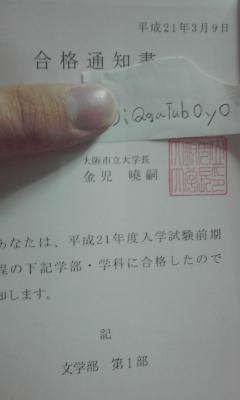 平成21年3月9日
合格通知書
iQgaTubOyO
大阪市立大学長
金児 曉嗣
あなたは、平成21年度入学試験前期
程の下記学部・学科に合格したので
知します。
記
文学部 第1部